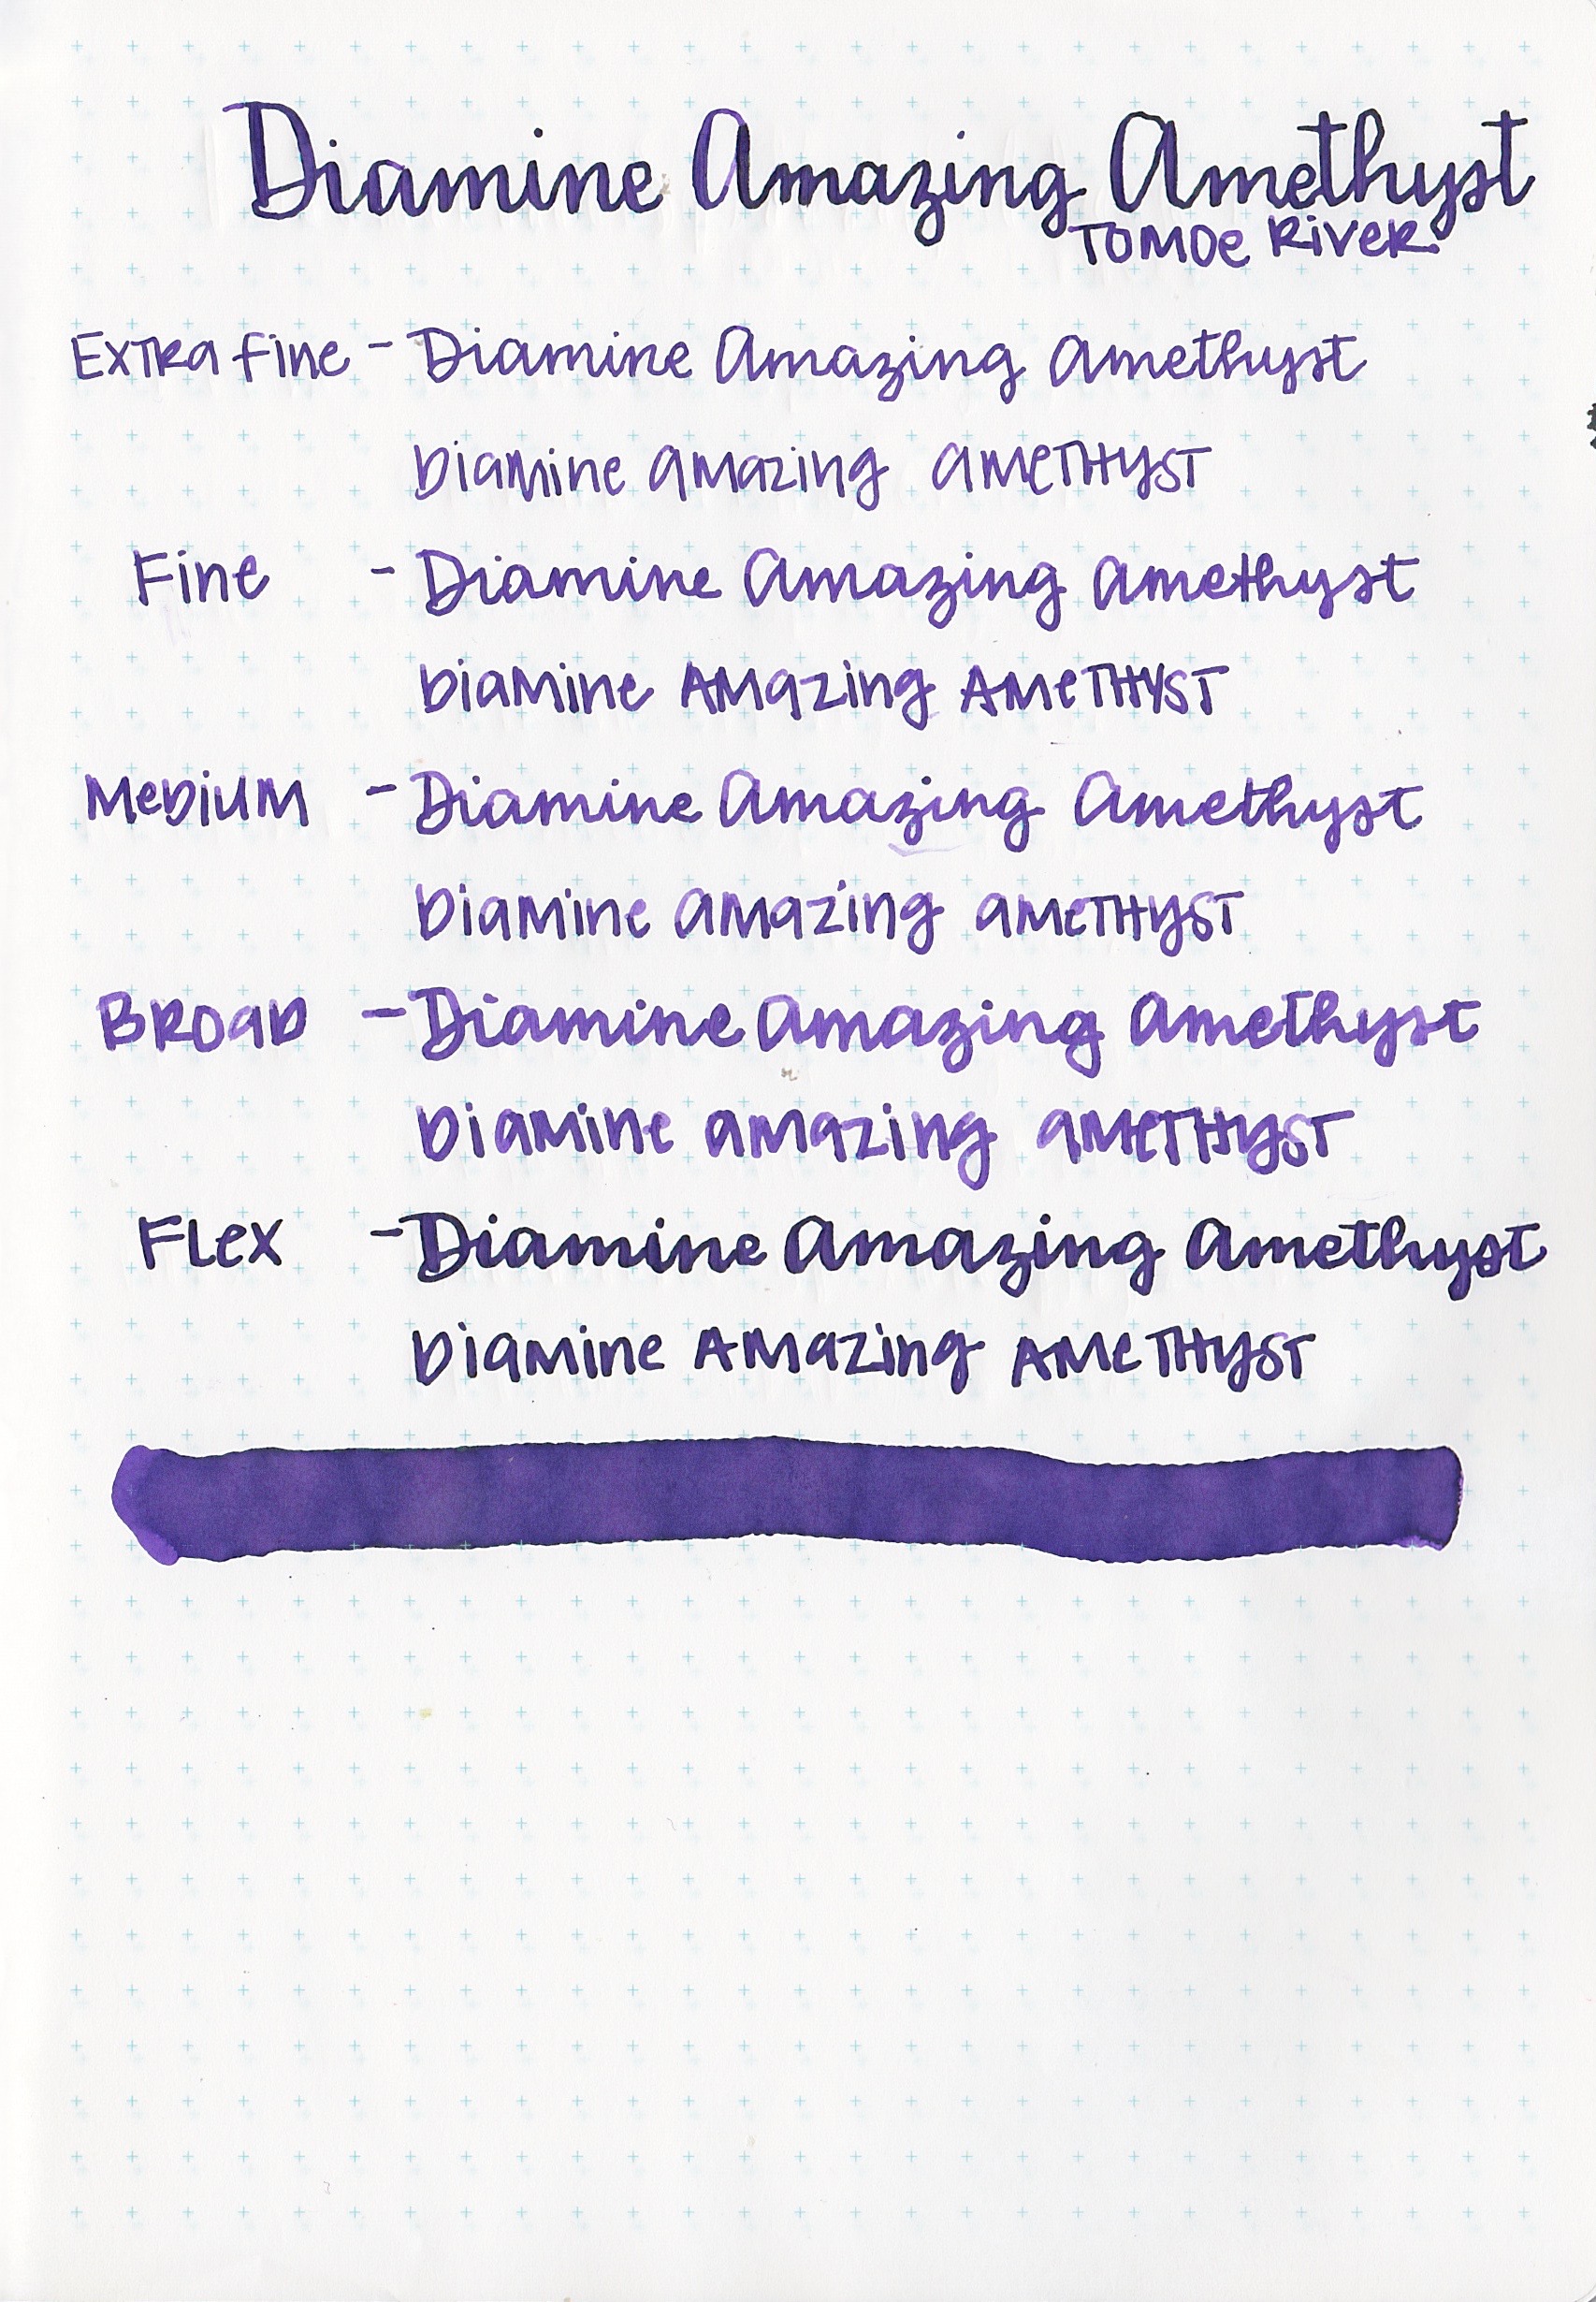 Diamine Amazing Amethyst
Tomoe River
Extra Fine - Diamine Amazing Amethyst
Diamine Amazing Amethyst
Fine - Diamine Amazing Amethyst
Diamine Amazing Amethyst
Medium - Diamine Amazing Amethyst
Diamine Amazing Amethyst
Broad - Diamine Amazing Amethyst
Diamine Amazing Amethyst
Flex - Diamine Amazing Amethyst
Diamine Amazing Amethyst